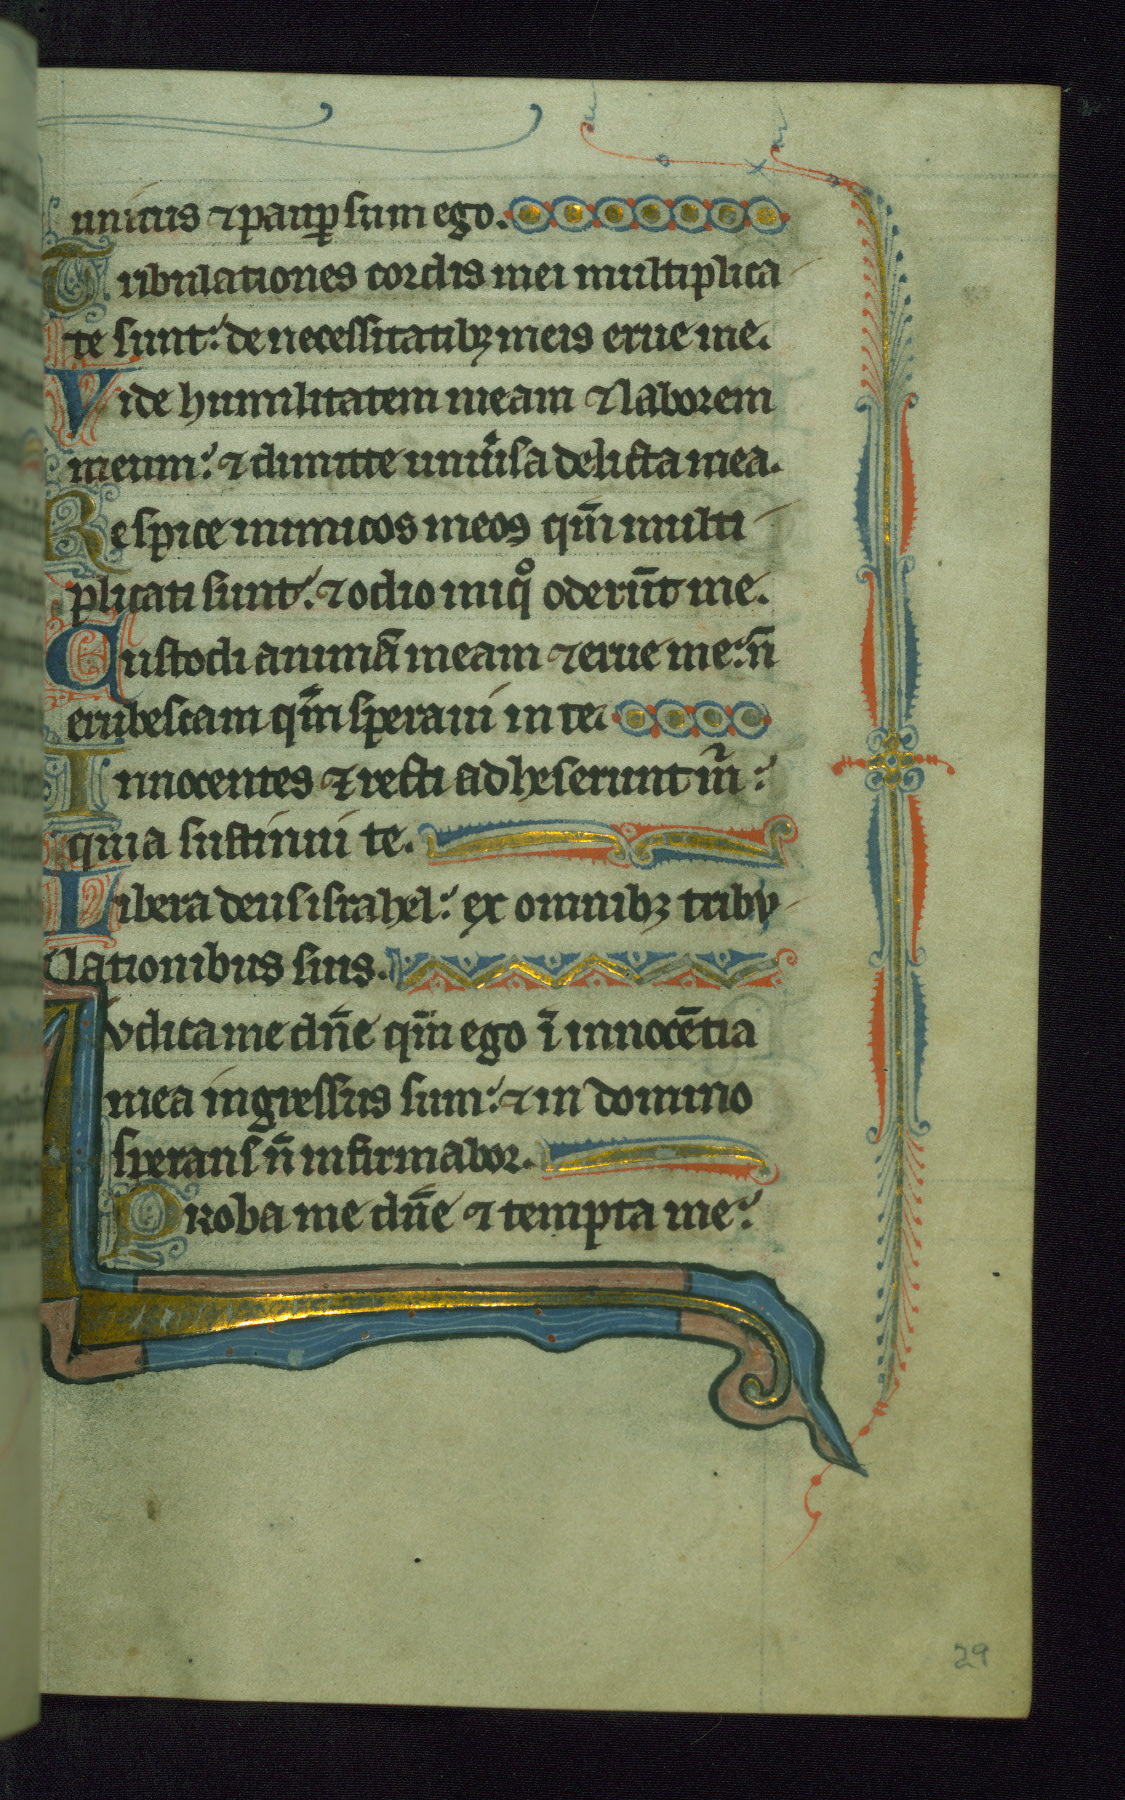 unicus ⁊ paup̲ sum ego.
Tribulationes cordis mei multiplica
te sunt: de necessitatibꝫ meis erue me.
Vide humilitatem meam ⁊ laborem
meum: ⁊ dimitte uniu̾sa delicta mea.
Respice inimicos meos qm̄ multi
plicati sunt: ⁊ odio iniqͦ oderūt me.
Custodi animā meam ⁊ erue me: n̄
erubescam qm̄ speraui in te.
Innocentes ⁊ recti adheserunt m̄:
quia sustinui te.
Libera deus israhel: ex omnibꝫ tribu
lationibus suis.
Iudica me dn̄e qm̄ ego ī innocētia
mea ingressus sum: ⁊ in domino
sperans n̄ infirmabor.
Proba me dn̄e ⁊ tempta me:
29